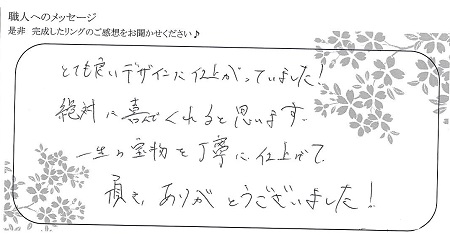 職人へのメッセージ
是非 完成したリングのご感想をお聞かせください♪
とても良いデザインに仕上がっていました！
絶対に喜んでくれると思います。
一生の宝物を丁寧に仕上げて
頂き、ありがとうございました！